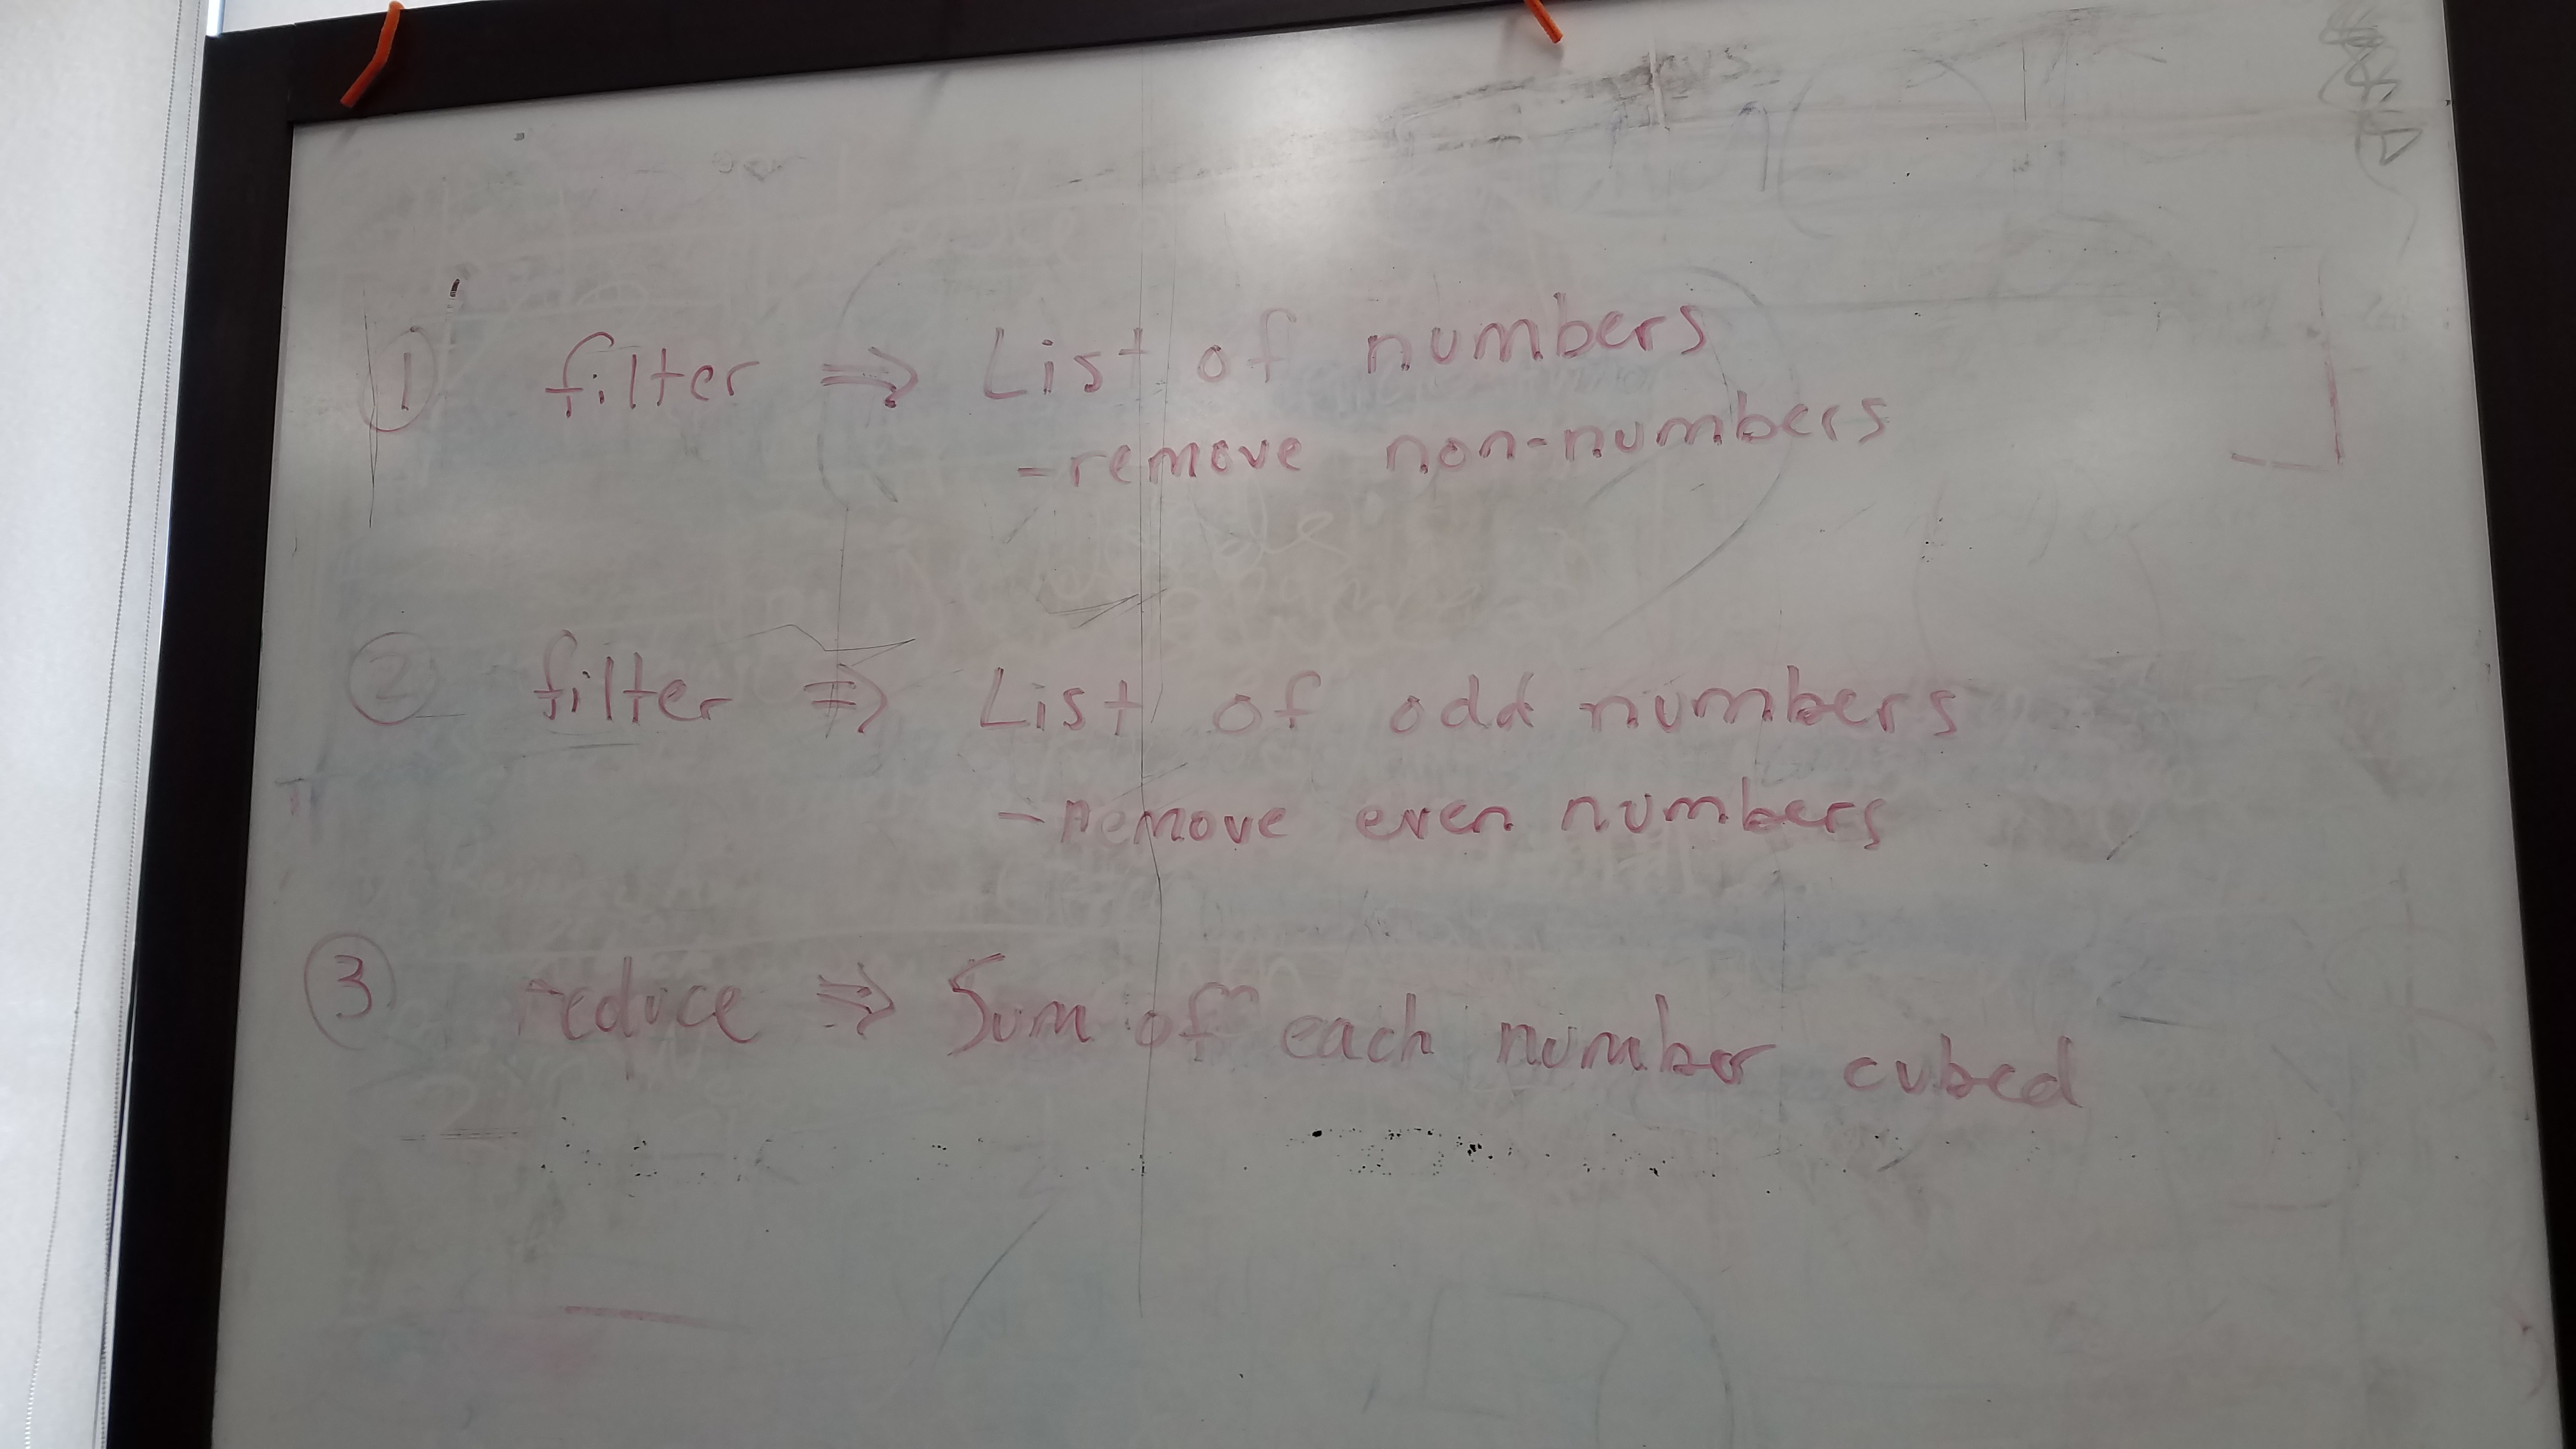 ① filter ⇒ List of numbers
-remove non-numbers
② filter ⇒ List of odd numbers
-remove even numbers
③ reduce ⇒ Sum of each number cubed